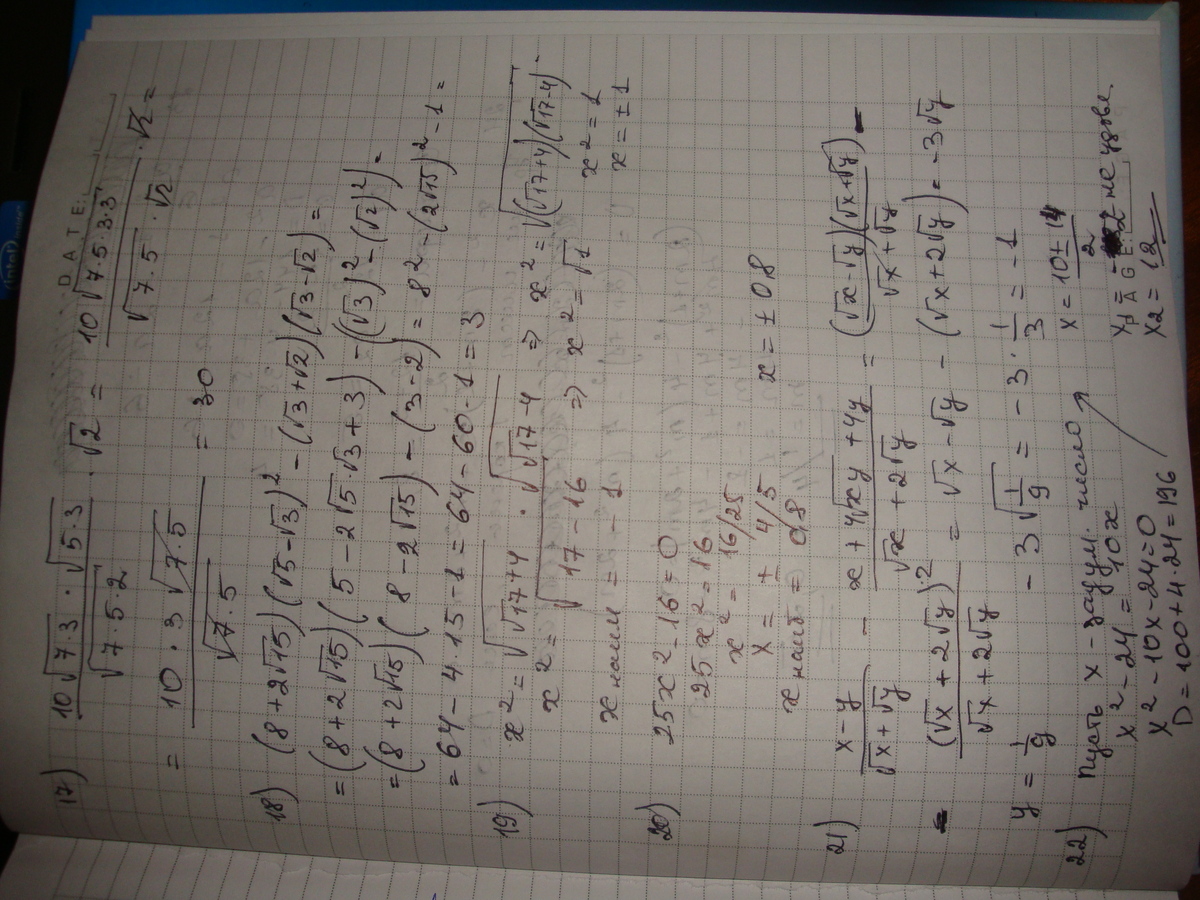 DATE:
17) 10√(7·3) · √(5·3) / √(7·5·2) · √2 = 10√(7·5·3·3) / √(7·5) · √2 · √2 =
= 10·3 √(7·5) / √(7·5) = 30
18) (8+2√15)(√5-√3)² - (√3+√2)(√3-√2) =
=(8+2√15)(5-2√5·√3+3) - ((√3)² - (√2)²) =
=(8+2√15)(8-2√15) - (3-2) = 8² - (2√15)² - 1 =
= 64 - 4·15 - 1 = 64 - 60 - 1 = 3
19) x² = √(√17+4) · √(√17-4) ⇒ x² = √((√17+4)(√17-4)
x² = √(17-16) ⇒ x² = √1 x² = 1
x наим = -1 x = ±1
20) 25x²-16=0
25x²=16
x² = 16/25
x = ± 4/5 x = ± 0,8
x наиб = 0,8
21) (x-y)/(√x+√y) - (x+4√(xy)+4y)/(√x+2√y) = (√x-√y)(√x+√y)/(√x+√y) -
- (√x+2√y)²/(√x+2√y) = √x-√y - (√x+2√y) = -3√y
y = 1/9 -3√(1/9) = -3·1/3 = -1
22) Пусть x - задум. число
x²-24 = 10x
x²-10x-24=0
D=100+4·24=196
x = (10±14)/2
x1 = -2 не удовл.
x2 = 12
PAGE:
(intel)